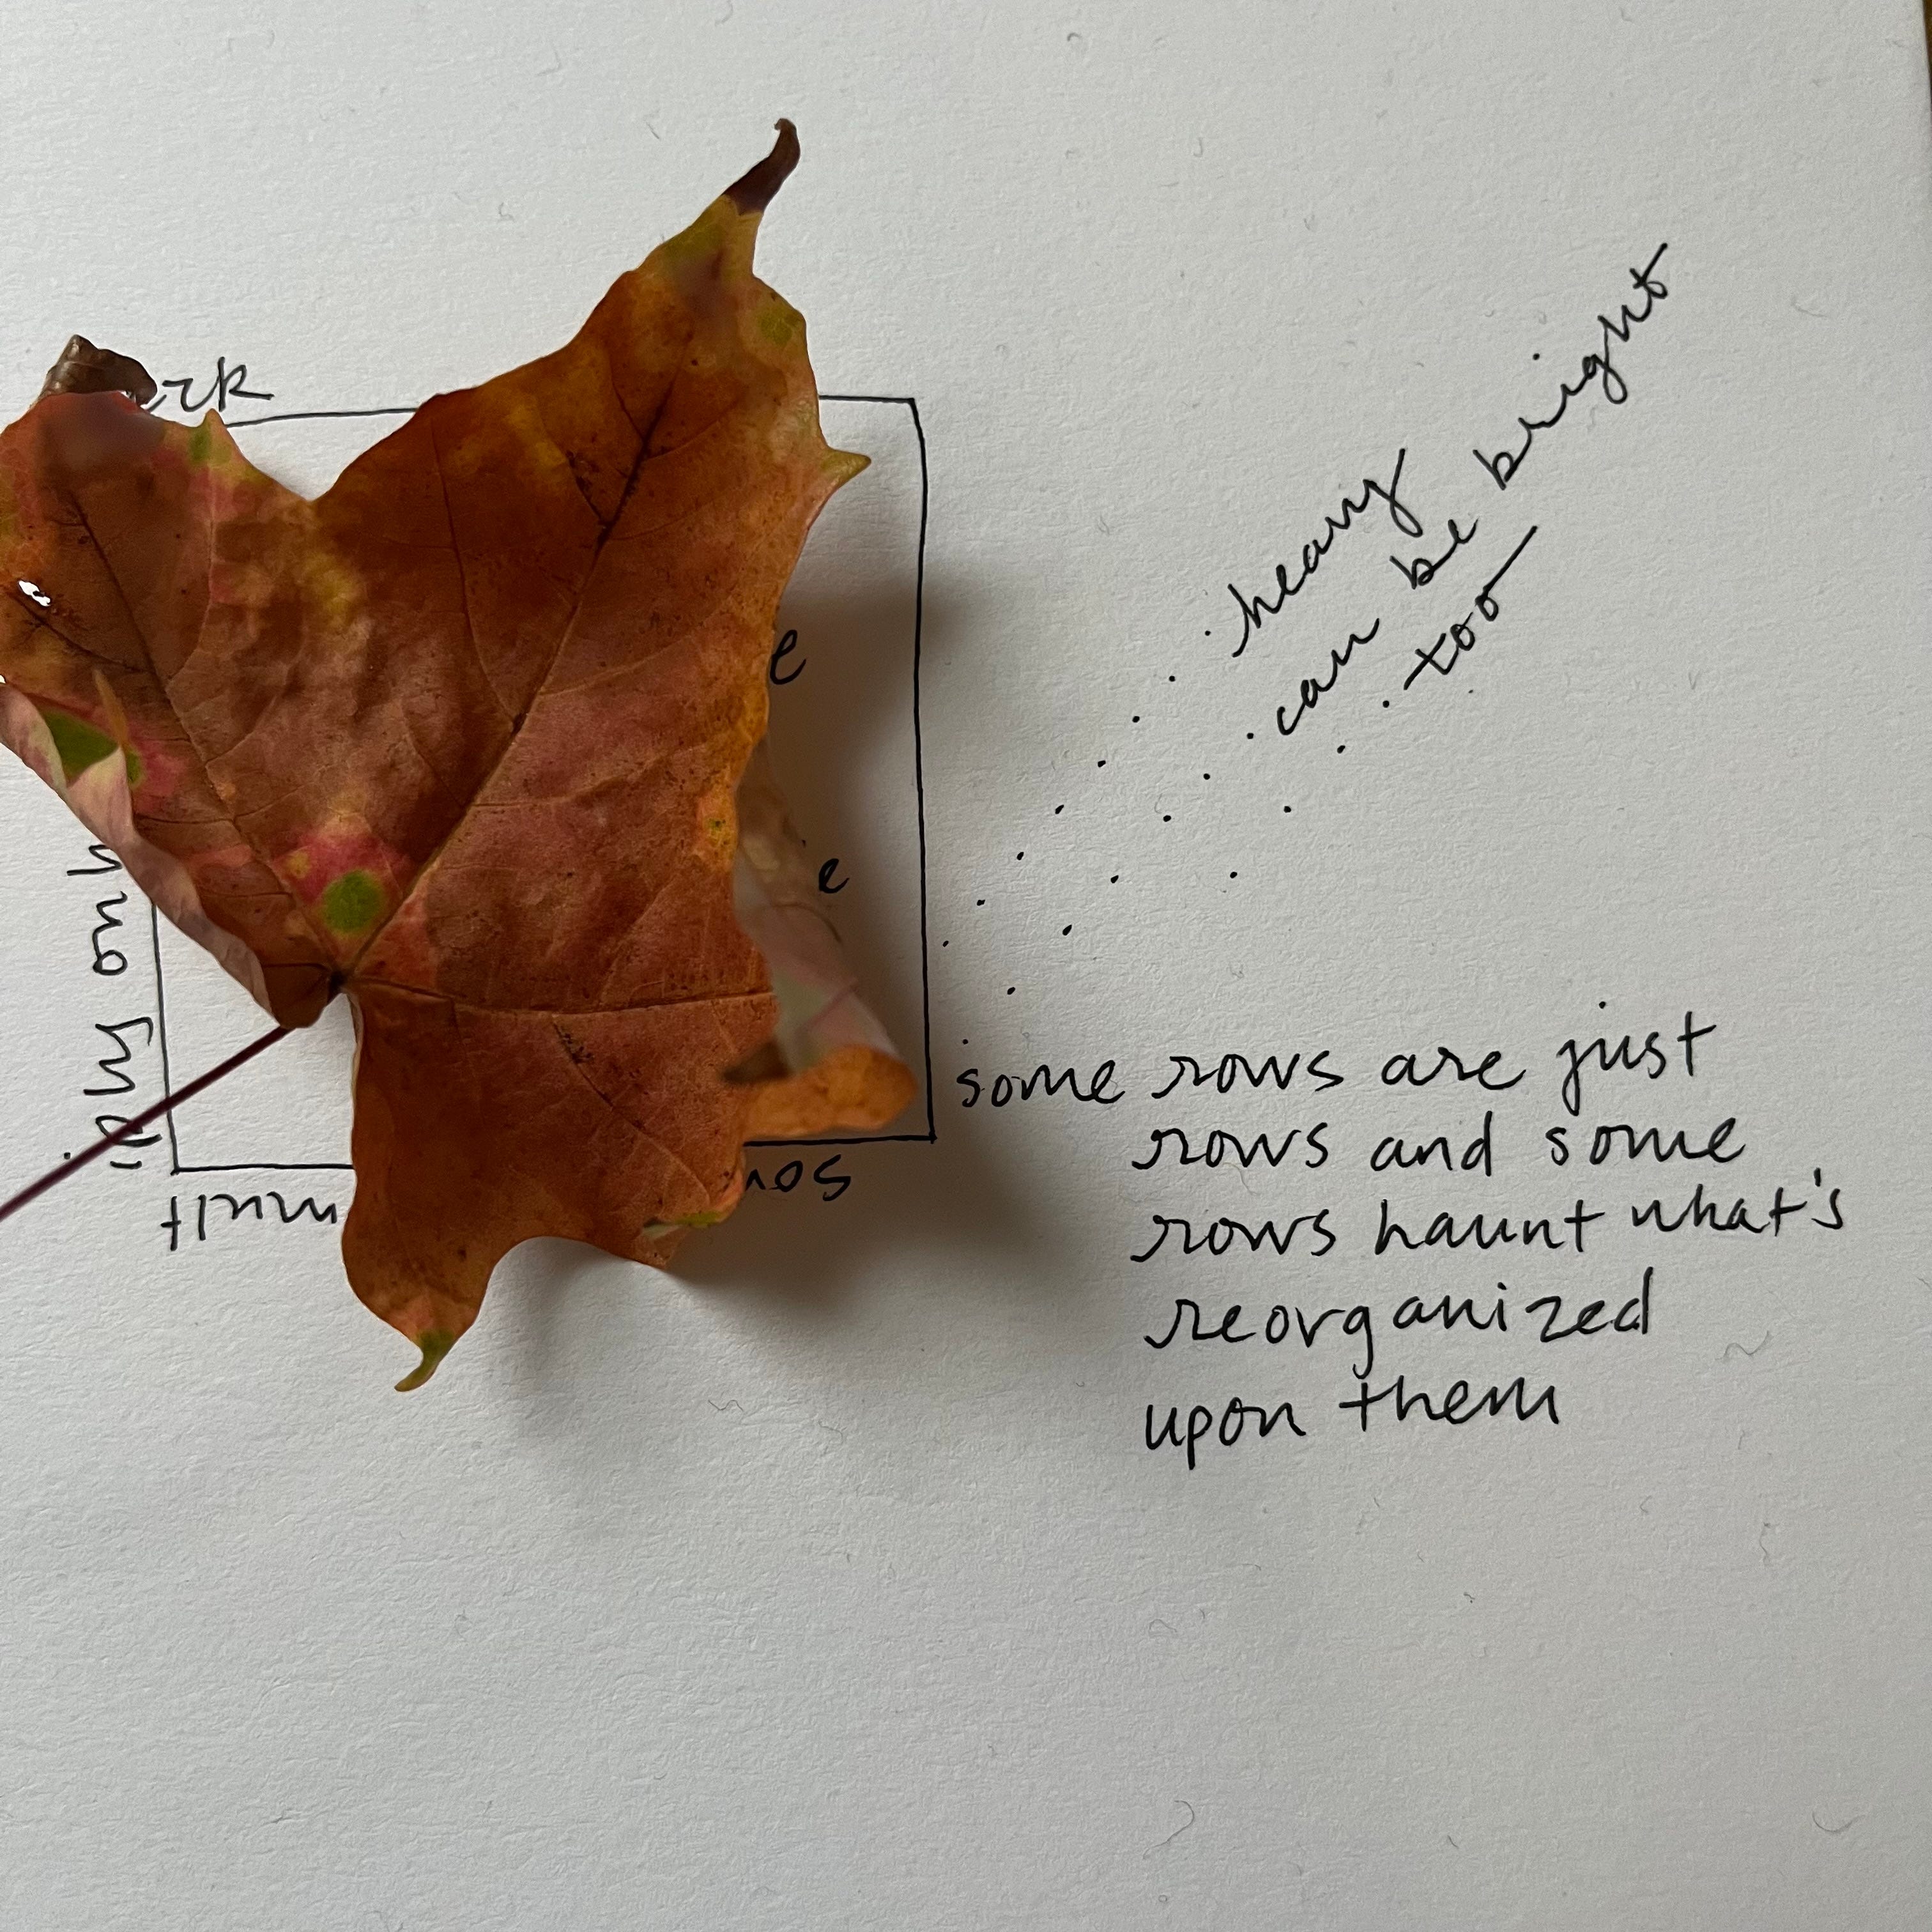 heavy
can be bright
too
some rows are just
rows and some
rows haunt what's
reorganized
upon them